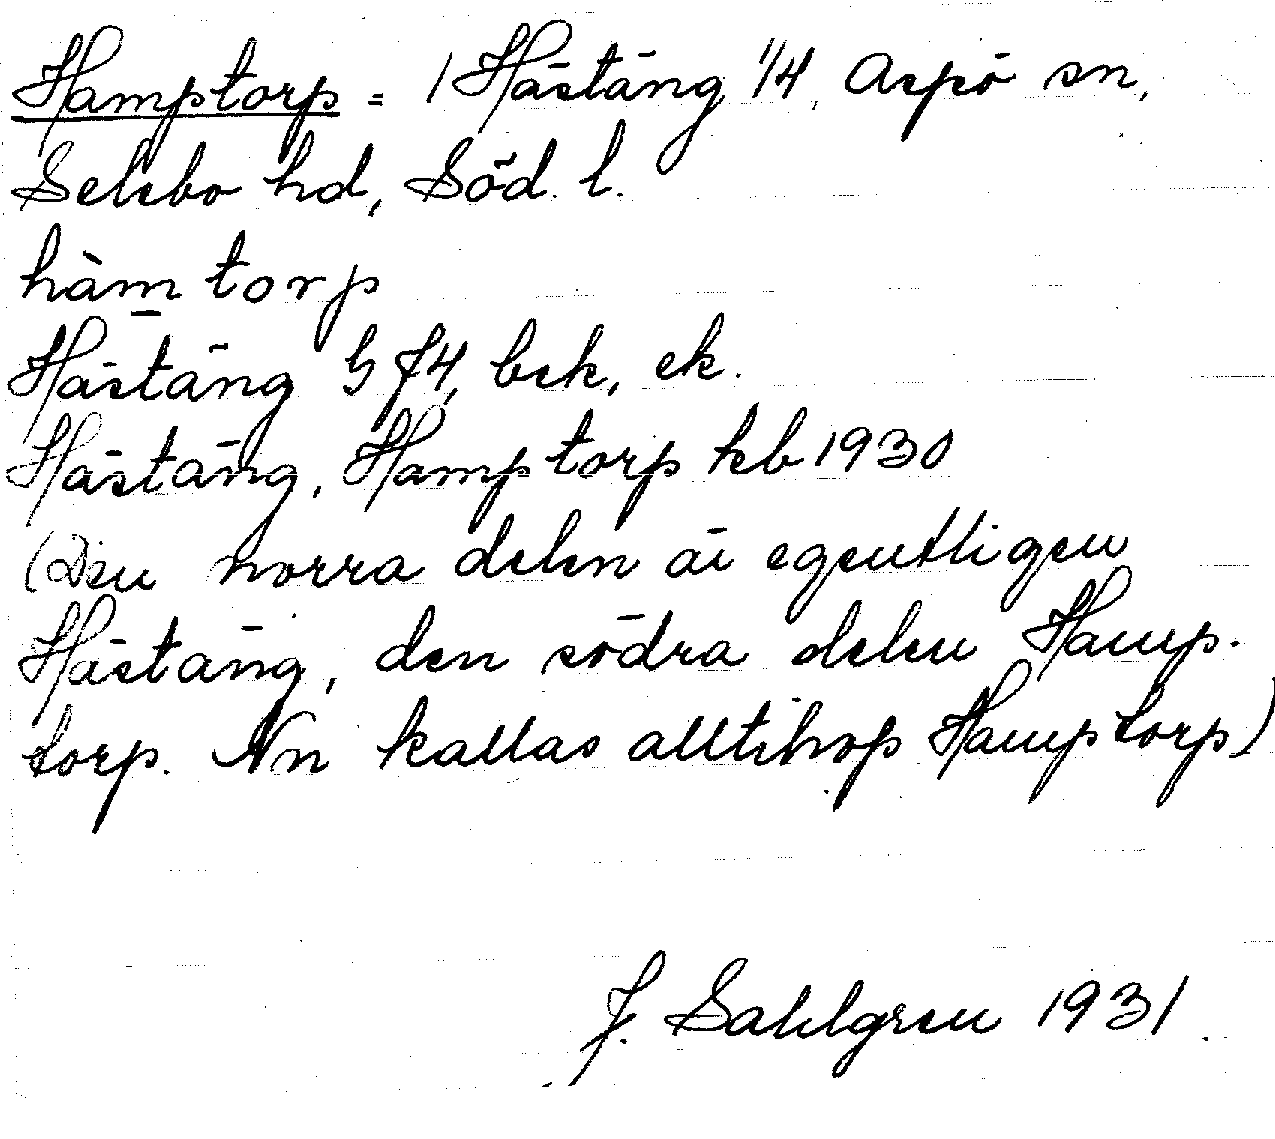 Hamptorp = 1 Hästäng 1/4, Aspö sn,
Selebo hd, Söd. l.
hàm torp
Hästäng G J4, bek, ek.
Hästäng, Hamptorp kb 1930
(Den norra delen är egentligen
Hästäng, den södra delen Hamp-
torp. Nn kallas alltihop Hamptorp)
J. Sahlgren 1931